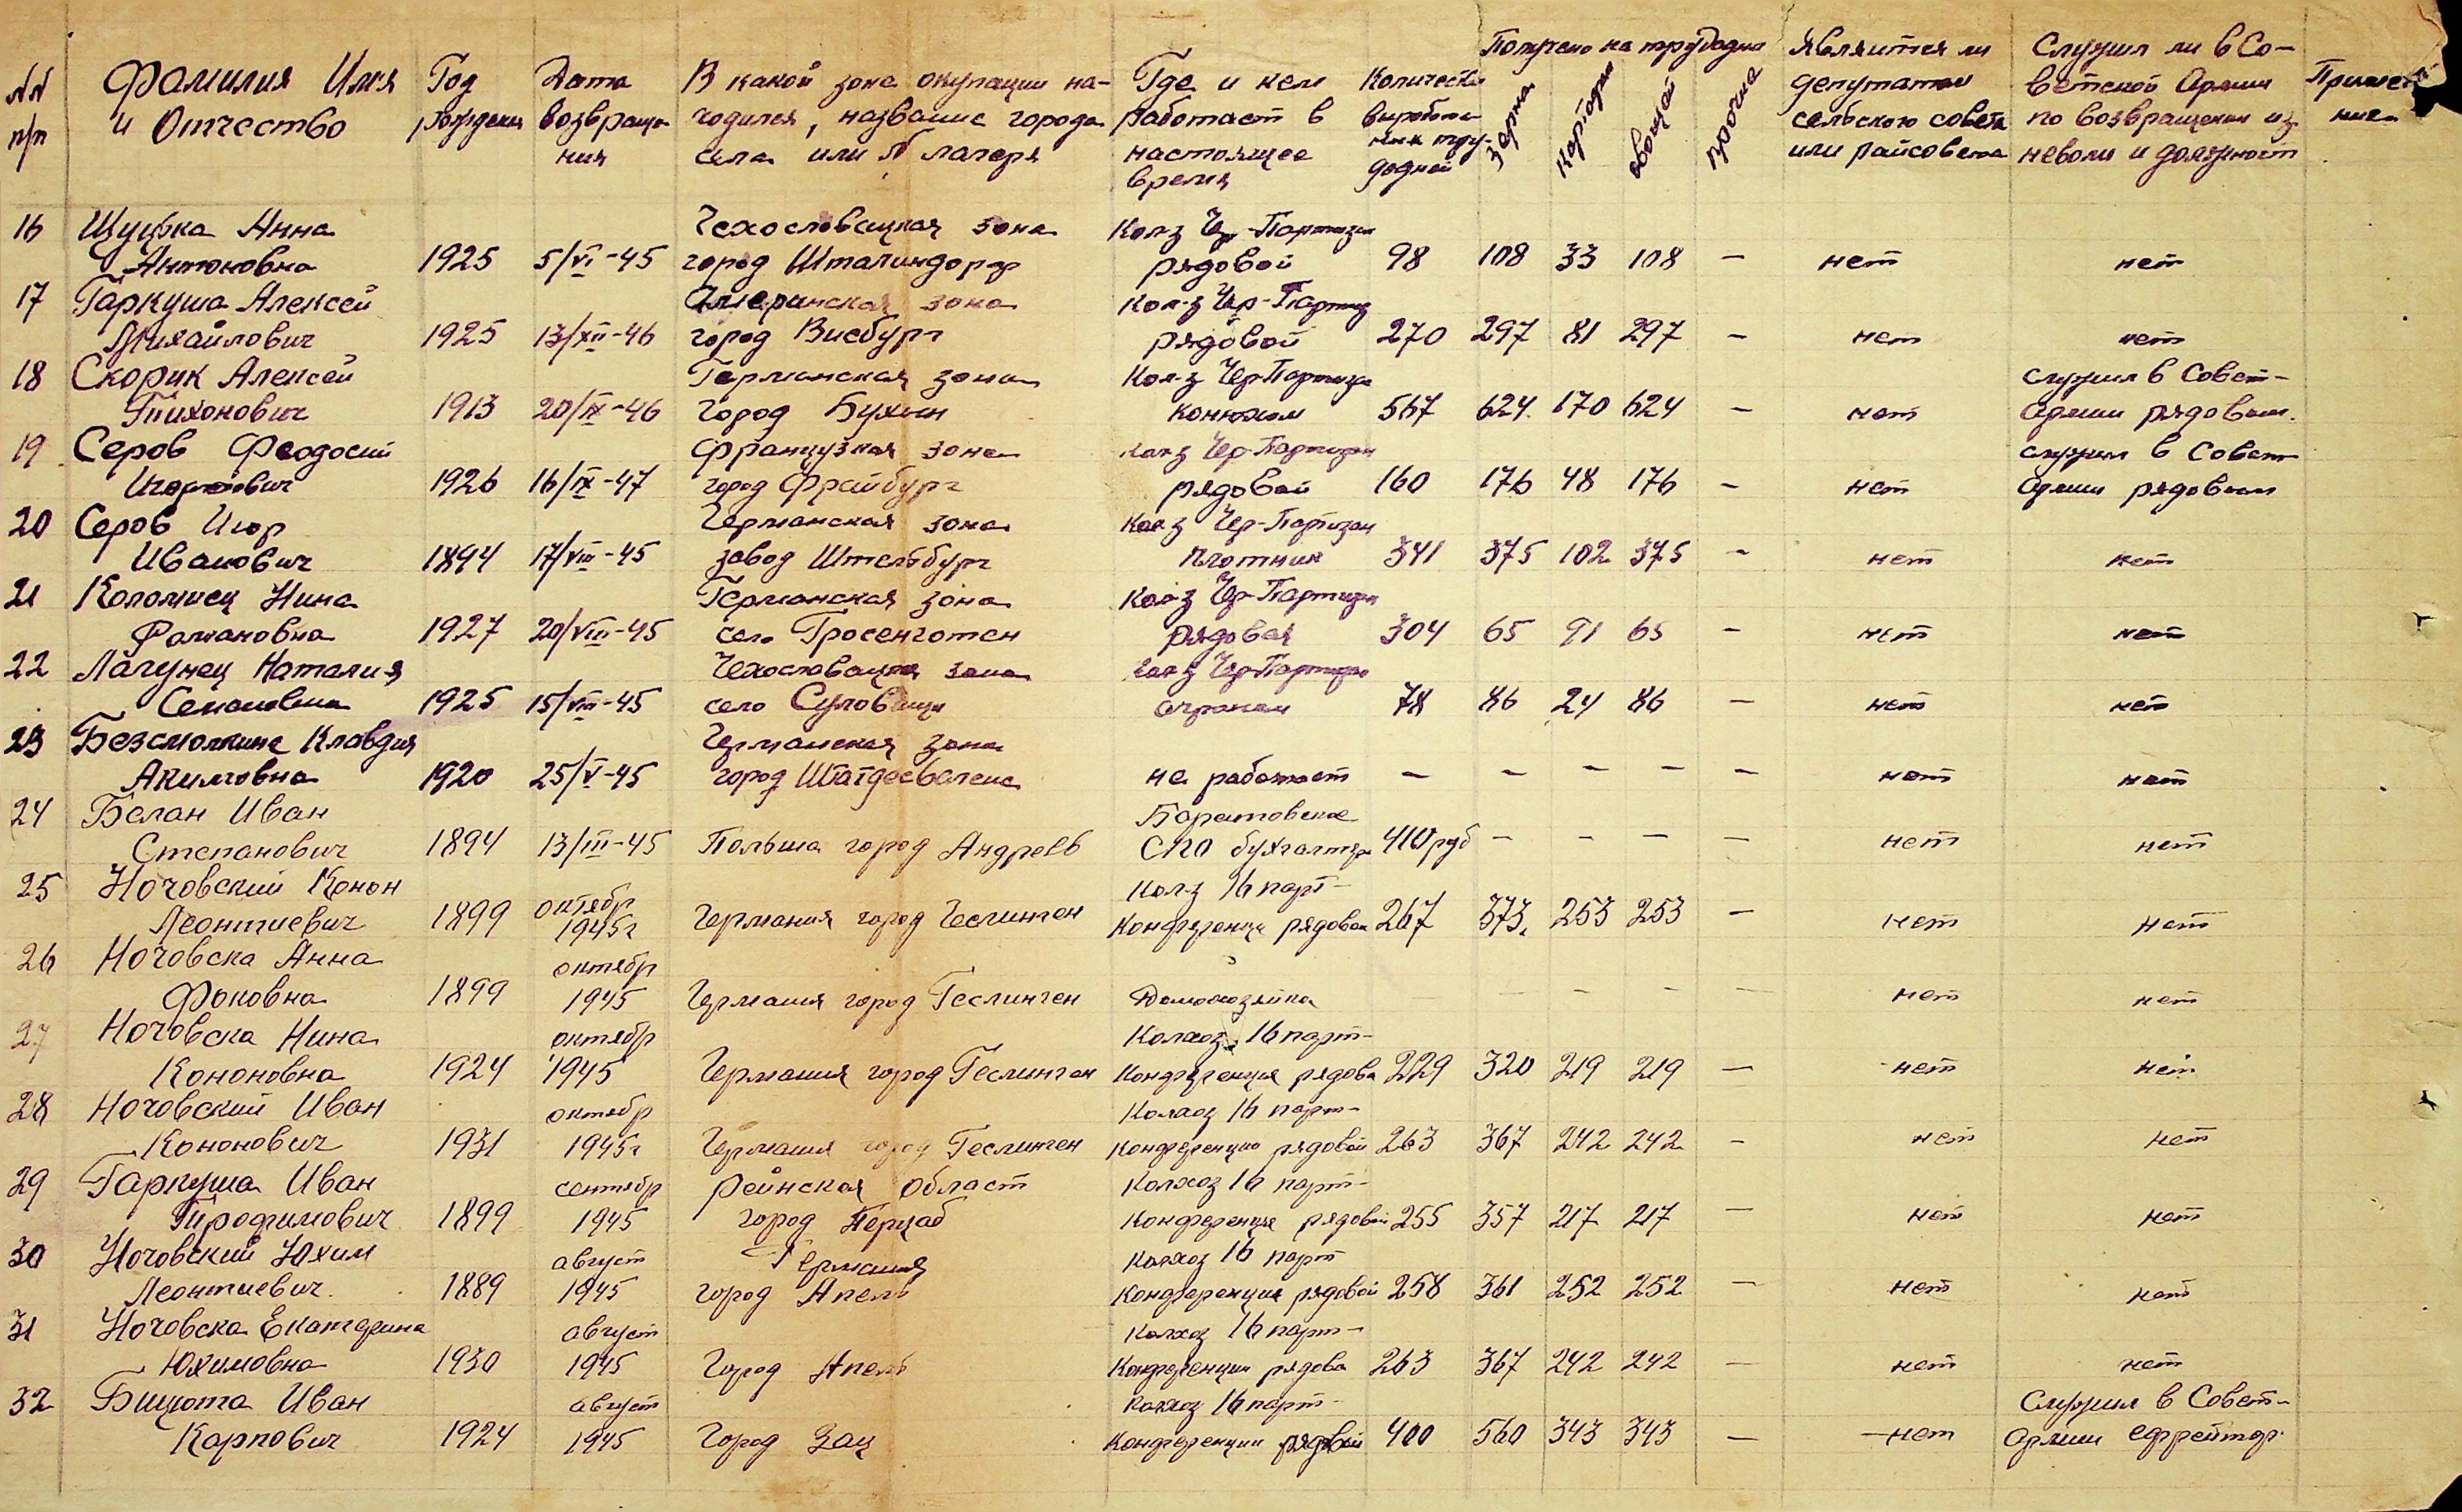 Получено на трудодни
№№ Фамилия Имя Год Дата В какой зоне окупации на- Где и кем Количество зерна картофля овощей прочие Является ли Служил ли в Со-
п/п и Отчество рождения возвраще- ходился, название города работает в выработа- депутатом ветской Армии Примеча-
ния села или № лагеря настоящее ных тру- сельского совета по возвращении из ние
время додней или райсовета неволи и должност
16 Щуцька Анна Чехословацкая зона Кол-з Чер-Партизан
Антоновна 1925 5/VI-45 город Шталиндорф рядовой 98 108 33 108 – нет нет
17 Гаркуша Алексей зона Кол-з Чер-Партиз
Михайлович 1925 13/XII-46 город Висбург рядовой 270 297 81 297 – нет нет
18 Скорик Алексей Германская зона Кол-з Чер Партиза служил в Совет-
Тихонович 1913 20/IX-46 город Бухын конюхом 567 624. 170 624 – нет Армии рядовым.
19 Серов Феодосий Французкая зона Кол-з Чер-Партизан служил в Совет
Игорович 1926 16/IX-47 город Фрайбург рядовой 160 176 48 176 – нет Армии рядовым
20 Серов Игор Германская зона Кол-з Чер-Партизан
Иванович 1894 17/VIII-45 завод Штельбург плотник 341 375 102 375 – нет нет
21 Коломиец Нина Германская зона Кол-з Чер-Партизан
Рамановна 1927 20/VIII-45 село Гросенготен рядовая 304 65 91 65 – нет нет
22 Лагунец Наталия Чехословацкая зона Кол-з Чер-Партизан
Семеновна 1925 15/VIII-45 село 78 86 24 86 – нет нет
23 Безсмолкине Клавдия Германская зона
Акимовна 1920 25/V-45 город не работает – – – – – нет нет
24 Белан Иван Баратовское
Степанович 1894 13/III-45 Польша город Андреев СПО бухгалтер 410 руб – – – – нет нет
25 Ночовский Конон октябр Кол-з 16 парт-
Леонтиевич 1899 1945г Германия город Геслинген Конференци рядовой 267 373. 253 253 – нет нет
26 Ночовска Анна октябр
Фоковна 1899 1945 Германия город Геслинген Домохозяйка – – – – нет нет
27 Ночовска Нина октябр Колхоз 16 парт-
Кононовна 1924 1945 Германия город Геслинген Конференция рядова 229 320 219 219 – нет нет
28 Ночовский Иван октябр Колхоз 16 парт-
Кононович 1931 1945г Германия город Геслинген Конференции рядовой 263 367 242 242 – нет нет
29 Гаркуша Иван сентябр рейнская област Колхоз 16 парт-
Трофимович 1899 1945 город Перцаб Конференция рядовой 255 357 217 217 – нет нет
30 Ночовский Юхим август Германия Колхоз 16 парт
Леонтиевич. 1889 1945 город Апель Конференция рядовой 258 361 252 252 – нет нет
31 Ночовска Екатерина август Колхоз 16 парт-
Юхимовна 1930 1945 Город Апель Конференции рядова 263 367 242 242 – нет нет
32 Бицюта Иван август Колхоз 16 парт- Служил в Совет-
Карпович 1924 1945 Город Зац Конференции рядовой 400 560 343 343 – нет Армии ефрейтор